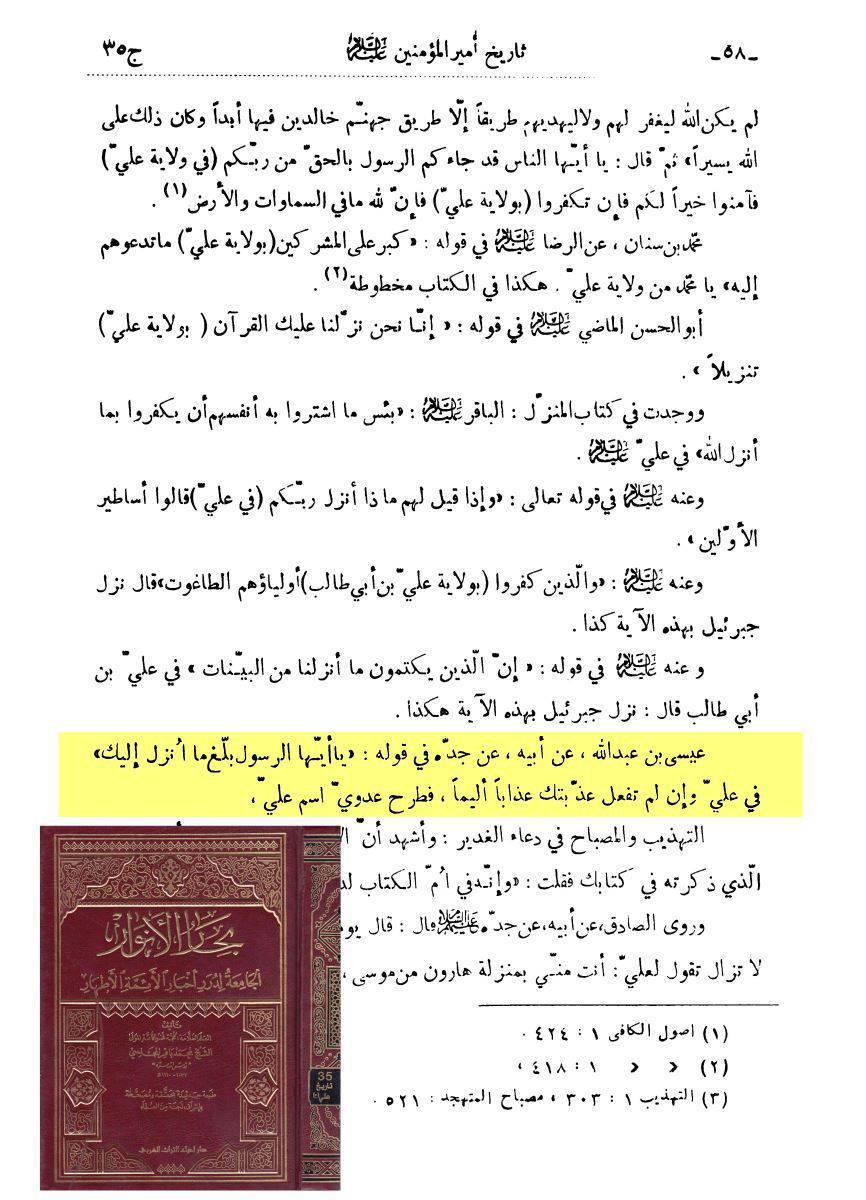 ـ٥٨ـ تاريخ أمير المؤمنين عليه السلام ج٣٥
لم يكن الله ليغفر لهم ولا ليهديهم طريقاً إلّا طريق جهنّم خالدين فيها أبداً وكان ذلك على
الله يسيراً» ثمّ قال : يا أيّها الناس قد جاءكم الرسول بالحقّ من ربّكم (في ولاية عليّ)
فآمنوا خيراً لكم فإن تكفروا (بولاية عليّ) فإنّ لله مافي السماوات والأرض(١) .
محمّد بن سنان ، عن الرضا عليه السلام في قوله : «كبر على المشركين (بولاية عليّ) ما تدعوهم
إليه» يا محمّد من ولاية عليّ . هكذا في الكتاب مخطوطة(٢) .
أبو الحسن الماضي عليه السلام في قوله : « إنّا نحن نزّلنا عليك القرآن ( بولاية عليّ)
تنزيلاً » .
ووجدت في كتاب المنزّل : الباقر عليه السلام : «بئس ما اشتروا به أنفسهم أن يكفروا بما
أنزل الله» في عليّ عليه السلام .
وعنه عليه السلام في قوله تعالى : «وإذا قيل لهم ماذا أنزل ربّكم (في عليّ) قالوا أساطير
الأوّلين » .
وعنه عليه السلام : «والّذين كفروا (بولاية عليّ بن أبي طالب) أولياؤهم الطاغوت» قال نزل
جبرئيل بهذه الآية كذا .
و عنه عليه السلام في قوله : « إنّ الّذين يكتمون ما أنزلنا من البيّنات » في عليّ بن
أبي طالب قال : نزل جبرئيل بهذه الآية هكذا .
عيسى بن عبدالله ، عن أبيه ، عن جدّه في قوله : «يا أيّها الرسول بلّغ ما اُنزل إليك»
في عليّ وإن لم تفعل عذّبتك عذاباً أليماً ، فطرح عدويّ اسم عليّ ،
التهذيب والمصباح في دعاء الغدير : وأشهد أنّ
الّذي ذكرته في كتابك فقلت : «وإنّه في اُمّ الكتاب
وروى الصادق ، عن أبيه ، عن جدّه عليهم السلام قال : قال
لا تزال تقول لعليّ : أنت منّي بمنزلة هارون من موسى ،
(١) اصول الكافى ١ : ٤٢٤ .
(٢) « « ١ : ٤١٨ ،
(٣) التهذيب ١ : ٣٠٣ ، مصباح المتهجد : ٥٢١ .
بحار الأنوار
الجامعة لدرر أخبار الأئمة الأطهار
تأليف
الشيخ محمد باقر المجلسي
دار إحياء التراث العربي
35
تاريخ